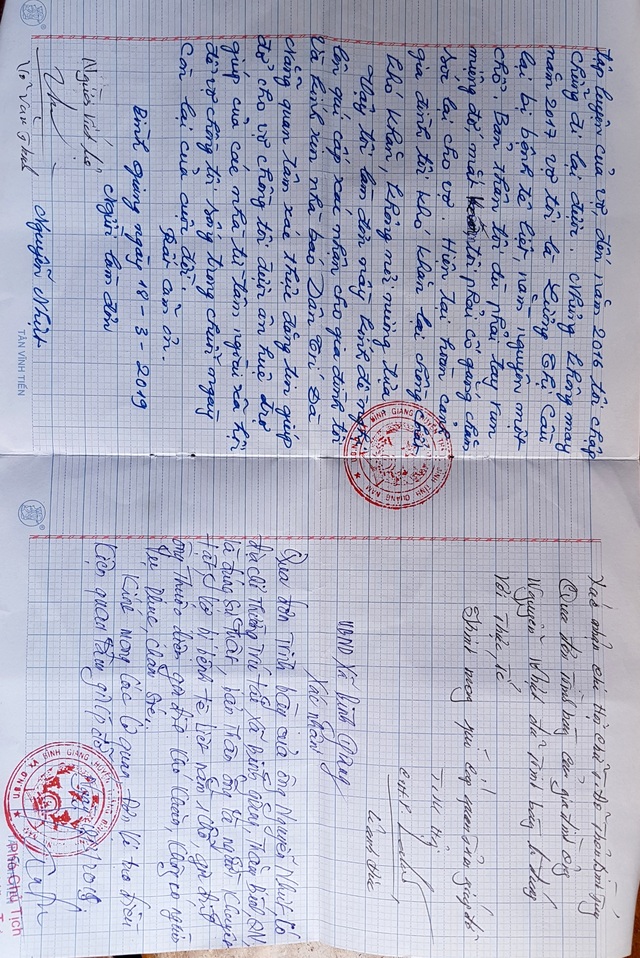 tập luyện của vợ, đến năm 2016 tôi chập
chững đi lại được. Nhưng không may
năm 2017 vợ tôi là Lường Thị Cầu
lại bị bệnh tê liệt, nằm nguyên một
chỗ. Bản thân tôi dù phải tay run
miệng đớ, mắt tôi phải cố gắng chăm
sóc lại cho vợ. Hiện tại hoàn cảnh
gia đình tôi khó khăn lại chồng chất
khó khăn, không nơi nương tựa
Vậy tôi làm đơn này kính đề nghị
lên quí cấp xác nhận cho gia đình tôi
Và kính xin nhà báo Dân Trí Đà
Nẵng quan tâm xác thực đăng tin giúp
đỡ cho vợ chồng tôi được ân huệ trợ
giúp của các nhà từ tâm ngoài xã hội
để vợ chồng tôi sống trong chuỗi ngày
Còn lại của cuộc đời.
Rất cảm ơn.
Bình Giang ngày 18-3-2019
Người viết hộ
Người làm đơn
Võ Văn
Nguyễn Nhựt
TÂN VĨNH TIẾN
Xác nhận Chi Hội Chữ
Qua đơn trình bày của gia đình ông
Nguyễn Nhựt đã trình bày là đúng
Với thực tế
Kính mong quí cấp quan tâm giúp đỡ
T/M Hội
UBND Xã Bình Giang
Xác nhận
Qua đơn trình bày của ông Nguyễn Nhựt, có
địa chỉ thường trú tại xã Bình Giang, Thăng Bình, QN,
là đúng sự thật, bản thân ông là người khuyết
tật, vợ bị bệnh tê liệt nằm 1 chỗ, gia đình
ông thuộc diện gia đình khó khăn, không có người
chăm sóc.
Kính mong các cơ quan
liên quan giúp đỡ
U.B.N.D XÃ BÌNH GIANG HUYỆN
TỈNH QUẢNG NAM
PHÓ CHỦ TỊCH